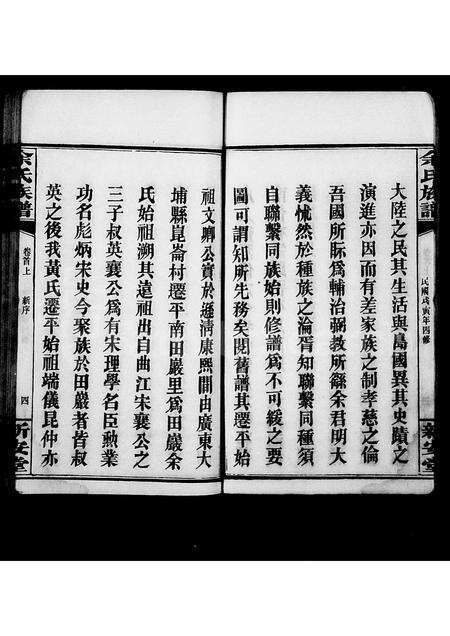 余氏族譜
民國戊寅年四修
新安堂
大陸之民其生活與島國異其史蹟之
演進亦因而有差家族之制孝慈之倫
吾國所眎爲輔治弼教所繇余君明大
義怵然於種族之淪胥知聯繫同種須
自聯繫同族始則修譜爲不可緩之要
圖可謂知所先務矣閱舊譜其遷平始
祖文卿公實於遜清康熙間由廣東大
埔縣崑崙村遷平南田嚴里爲田嚴余
氏始祖溯其遠祖出自曲江宋襄公之
三子叔英襄公爲有宋理學名臣勲業
功名彪炳宋史今聚族於田嚴者皆叔
英之後我黃氏遷平始祖端儀昆仲亦
余氏族譜
卷首上
新序
四
新安堂